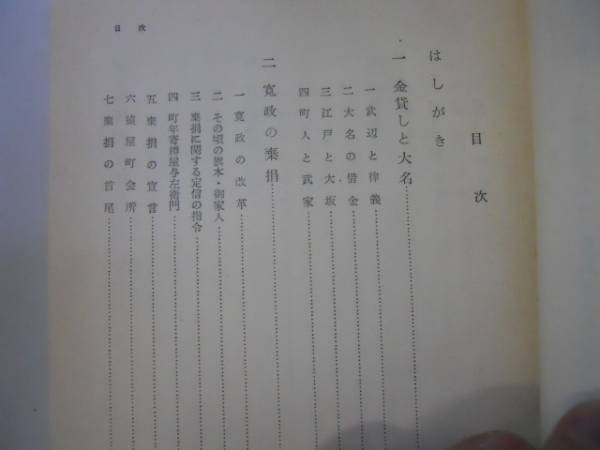 目次
はしがき
一 金貸しと大名
一 武辺と律義
二 大名の借金
三 江戸と大坂
四 町人と武家
二 寛政の棄捐
一 寛政の改革
二 その頃の旗本・御家人
三 棄捐に関する定信の指令
四 町年寄樽屋与左衛門
五 棄捐の宣言
六 猿屋町会所
七 棄捐の首尾
目次